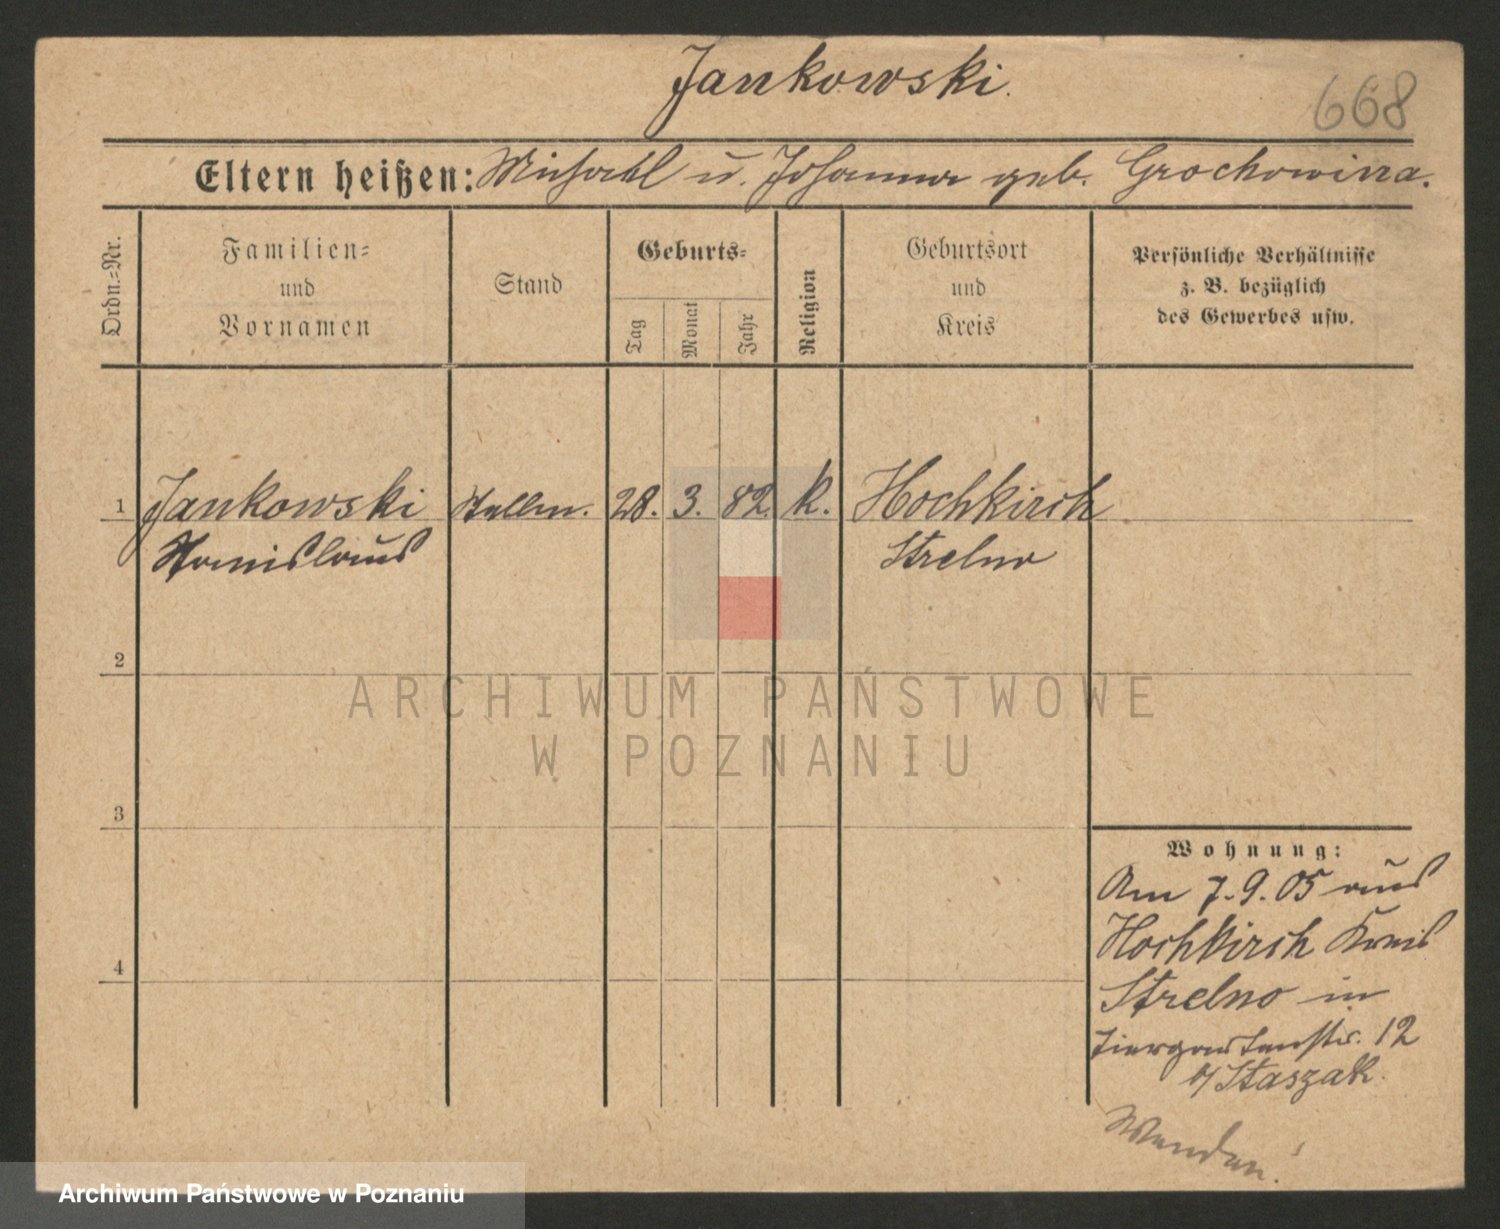 Jankowski.
668
Eltern heißen: Michael u. Johanna geb. Grochowina.
Ordn.=Nr.
Familien=
und
Vornamen
Stand
Geburts=
Tag
Monat
Jahr
Religion
Geburtsort
und
Kreis
Persönliche Verhältnisse
z. B. bezüglich
des Gewerbes usw.
1 Jankowski Stellm. 28. 3. 82. k. Hochkirch
Stanislaus Strelno
2
ARCHIWUM PAŃSTWOWE
W POZNANIU
3
Wohnung:
Am 7.9.05 aus
Hochkirch Kreis
4
Strelno in
Tiergartenstr. 12
b/Staszak.
Wenden!
Archiwum Państwowe w Poznaniu